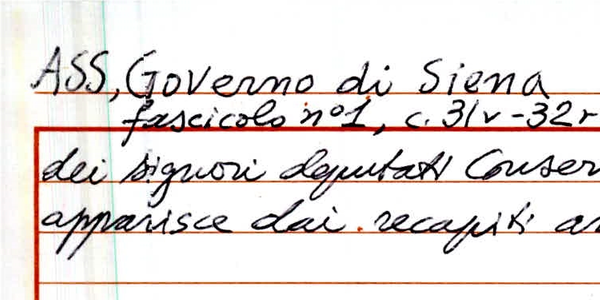 ASS, Governo di Siena
fascicolo n°1, c. 31v-32r
dei signori deputati Conser
apparisce dai recapiti an